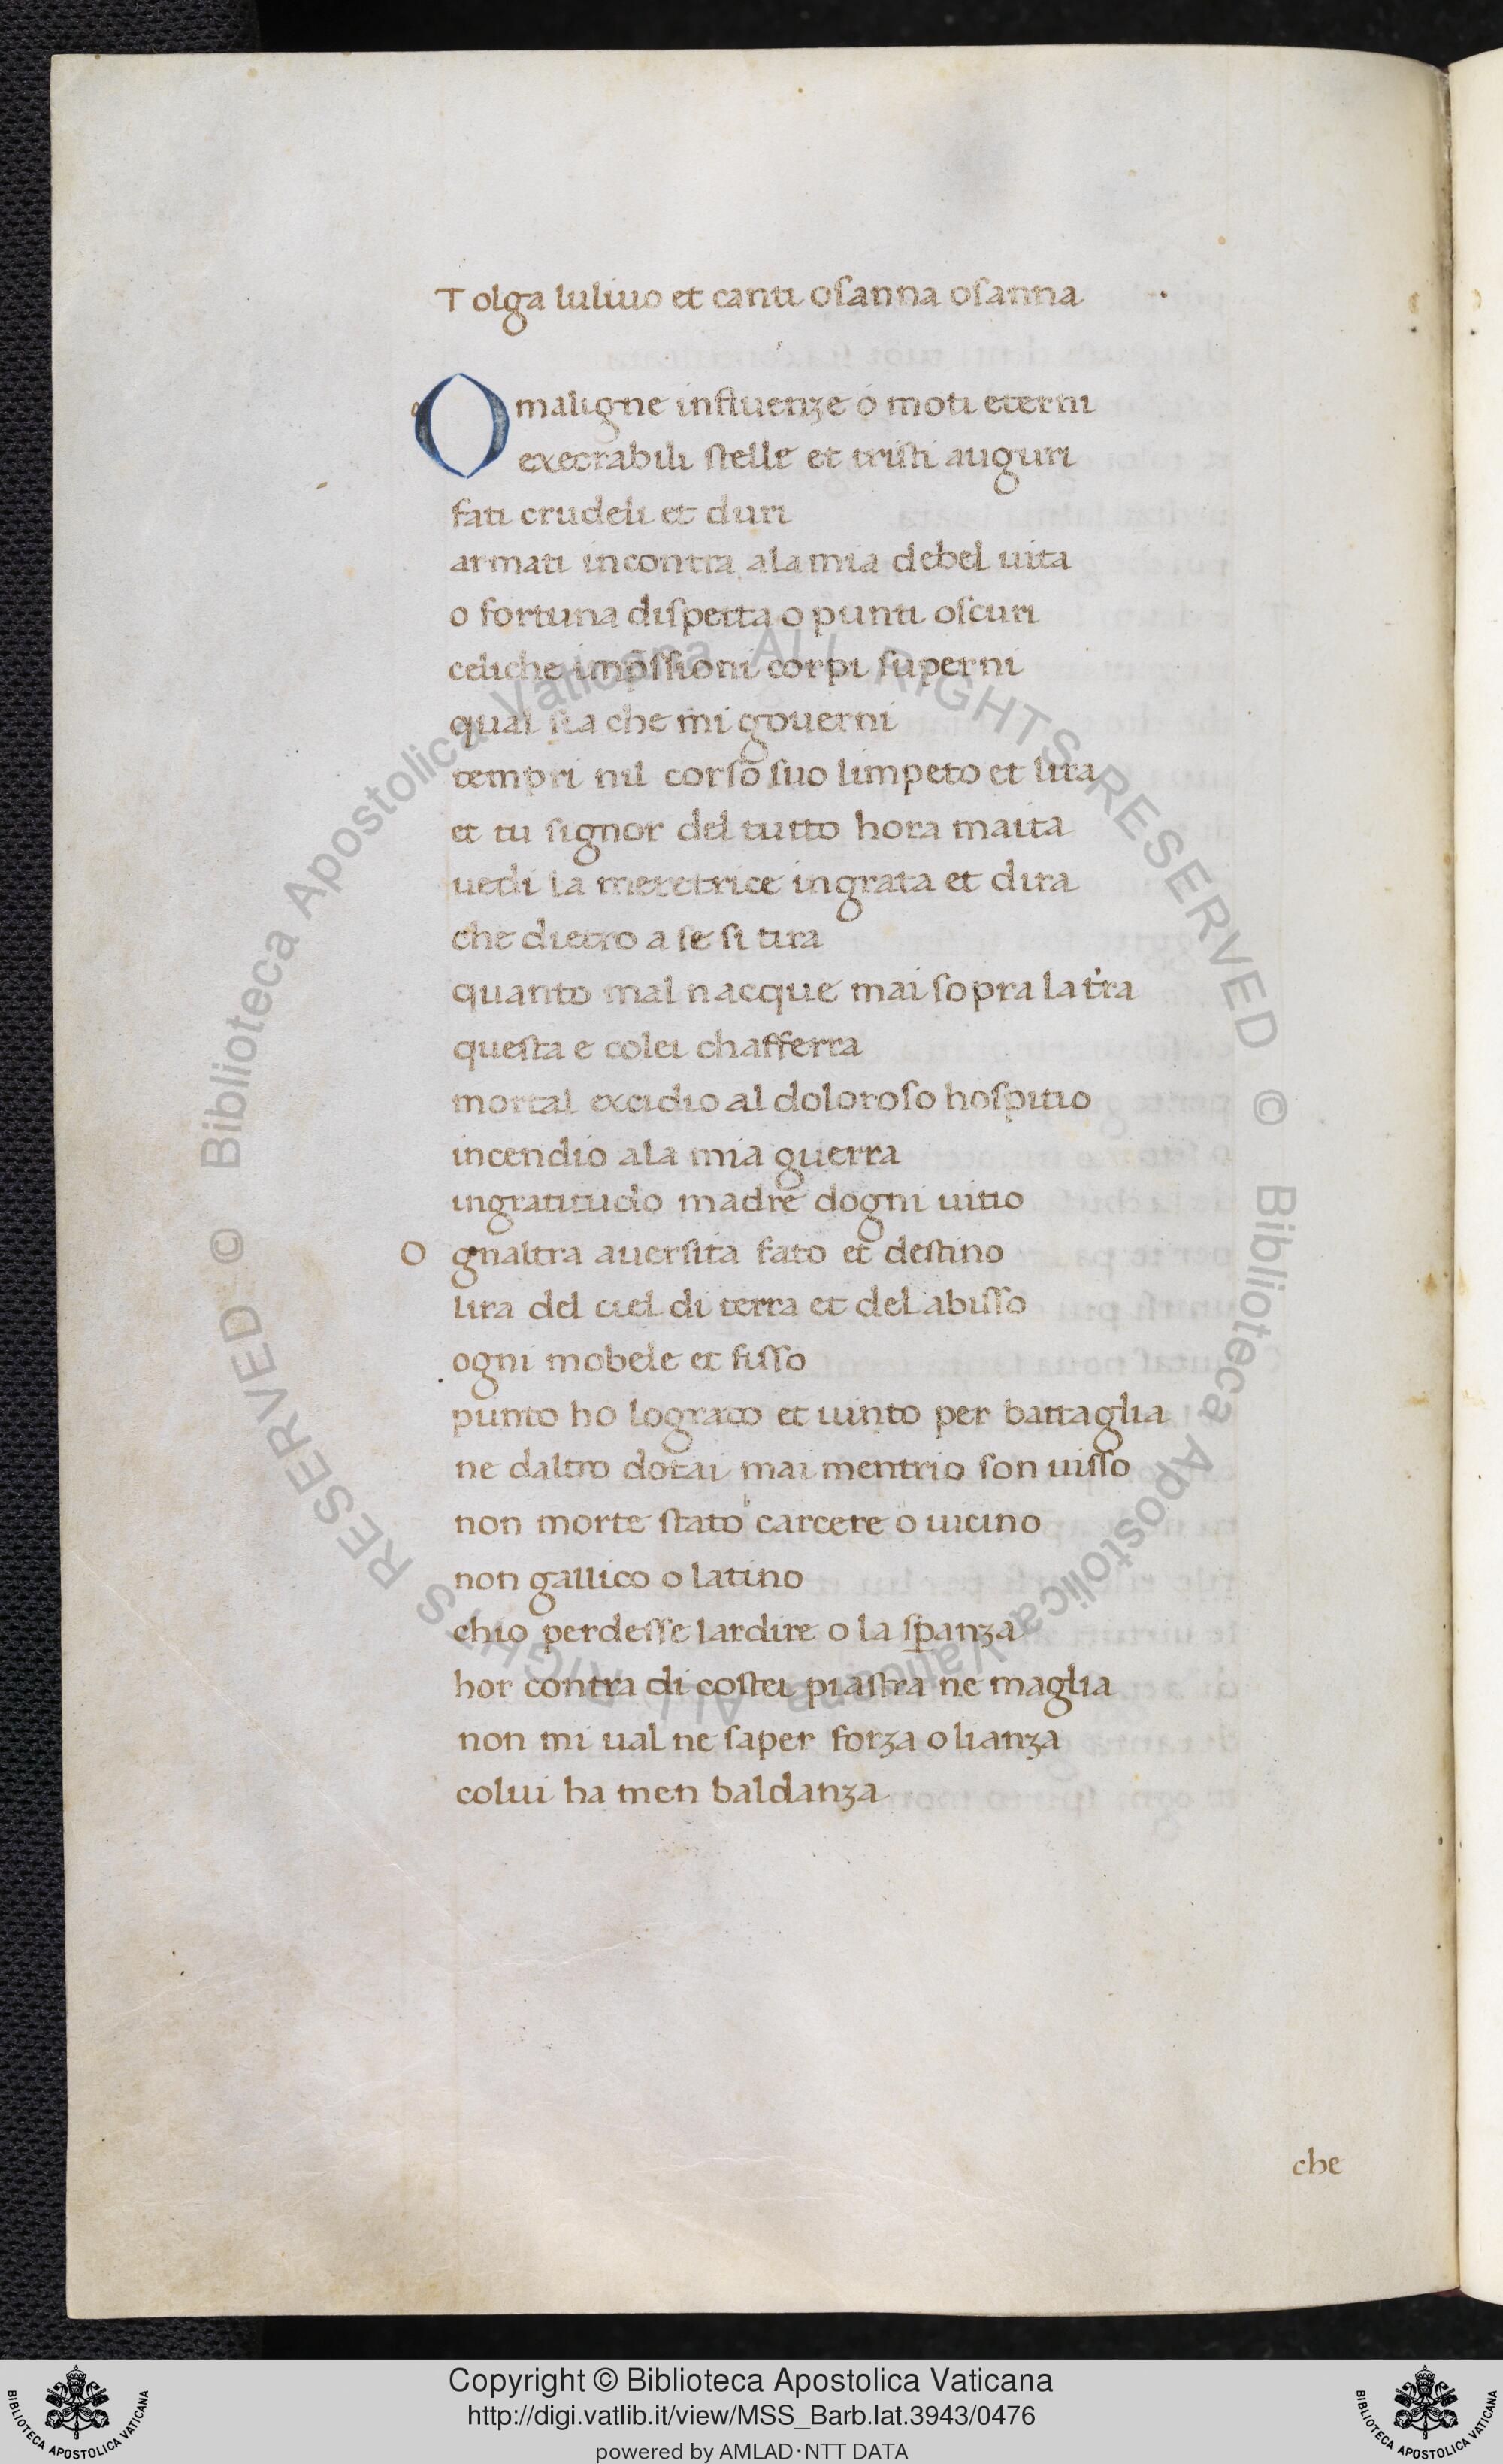 Tolga luliuo et canti osanna osanna
O maligne influenze ó moti eterni
execrabili stelle et tristi auguri
fati crudeli et duri
armati incontra ala mia debel uita
o fortuna dispetta o punti oscuri
celiche impssioni corpi superni
qual sia che mi gouerni
tempri nil corso suo limpeto et lira
et tu signor del tutto hora maita
uedi la meretrice ingrata et dira
che dietro a se si tira
quanto mal nacque mai sopra la tr̃a
questa e colei chafferra
mortal excidio al doloroso hospitio
incendio ala mia guerra
ingratitudo madre dogni uitio
O gnaltra auersita fato et destino
lira del ciel di terra et del abisso
ogni mobele et fisso
punto ho lograto et uinto per battaglia
ne daltro dotai mai mentrio son uisso
non morte stato carcere o uicino
non gallico o latino
chio perdesse lardire o la sp̱anza
hor contra di costei piastra ne maglia
non mi ual ne saper forza o lianza
colui ha men baldanza
che
© Biblioteca Apostolica Vaticana ALL RIGHTS RESERVED © Biblioteca Apostolica Vaticana ALL RIGHTS RESERVED
Copyright © Biblioteca Apostolica Vaticana
http://digi.vatlib.it/view/MSS_Barb.lat.3943/0476
powered by AMLAD·NTT DATA
BIBLIOTECA APOSTOLICA VATICANA
BIBLIOTECA APOSTOLICA VATICANA